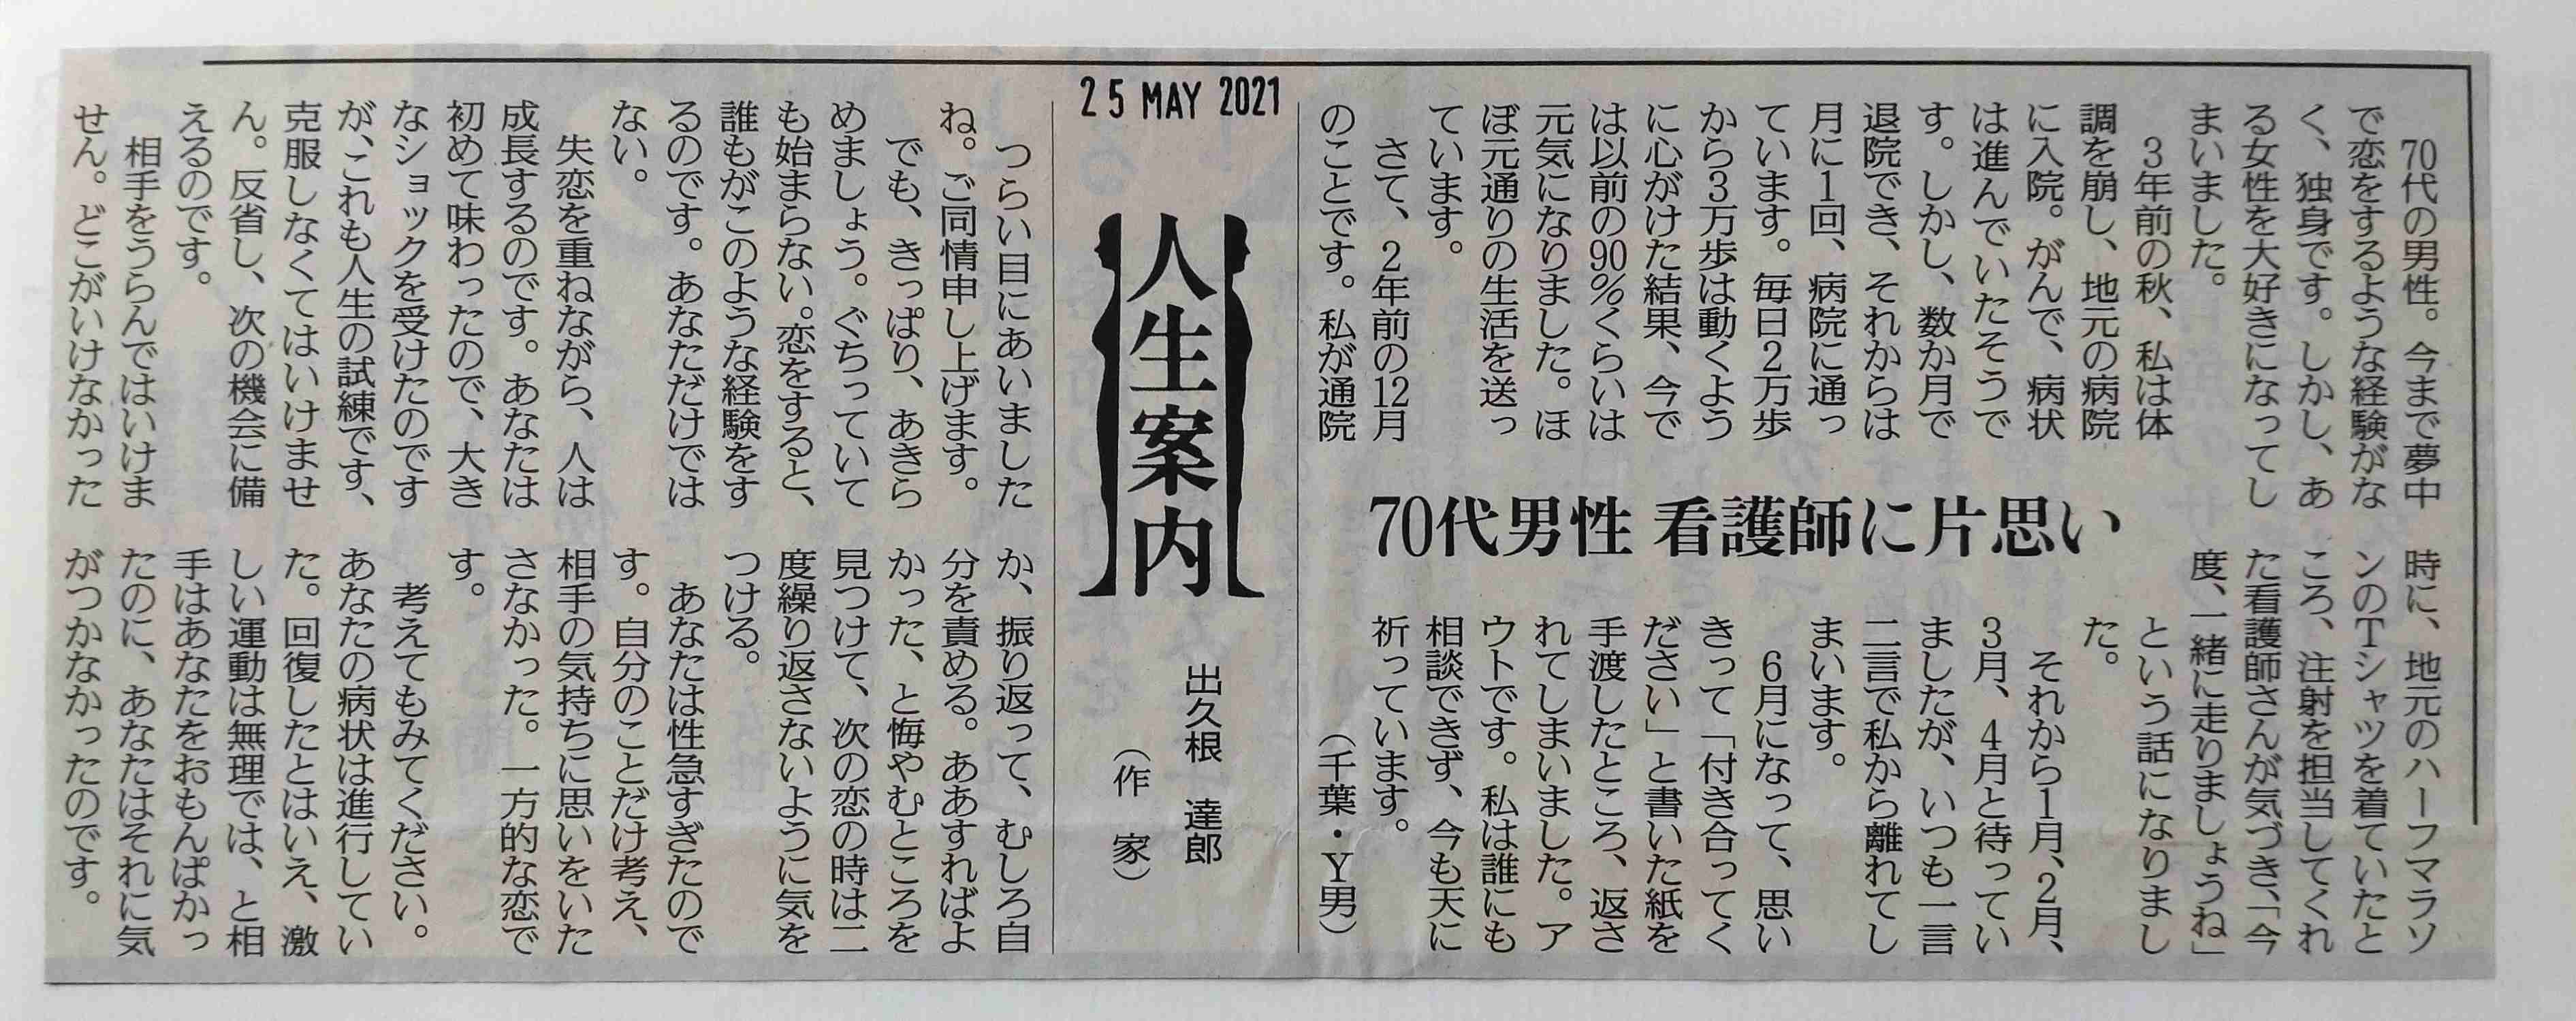 70代男性 看護師に片思い
70代の男性。今まで夢中
で恋をするような経験がな
く、独身です。しかし、あ
る女性を大好きになってし
まいました。
3年前の秋、私は体
調を崩し、地元の病院
に入院。がんで、病状
は進んでいたそうで
す。しかし、数か月で
退院でき、それからは
月に1回、病院に通っ
ています。毎日2万歩
から3万歩は動くよう
に心がけた結果、今で
は以前の90%くらいは
元気になりました。ほ
ぼ元通りの生活を送っ
ています。
さて、2年前の12月
のことです。私が通院
時に、地元のハーフマラソ
ンのTシャツを着ていたと
ころ、注射を担当してくれ
た看護師さんが気づき、「今
度、一緒に走りましょうね」
という話になりまし
た。
それから1月、2月、
3月、4月と待ってい
ましたが、いつも一言
二言で私から離れてし
まいます。
6月になって、思い
きって「付き合ってく
ださい」と書いた紙を
手渡したところ、返さ
れてしまいました。ア
ウトです。私は誰にも
相談できず、今も天に
祈っています。
（千葉・Y男）
25 MAY 2021
人生案内
出久根 達郎
（作 家）
つらい目にあいました
ね。ご同情申し上げます。
でも、きっぱり、あきら
めましょう。ぐちっていて
も始まらない。恋をすると、
誰もがこのような経験をす
るのです。あなただけでは
ない。
失恋を重ねながら、人は
成長するのです。あなたは
初めて味わったので、大き
なショックを受けたのです
が、これも人生の試練です、
克服しなくてはいけませ
ん。反省し、次の機会に備
えるのです。
相手をうらんではいけま
せん。どこがいけなかった
か、振り返って、むしろ自
分を責める。ああすればよ
かった、と悔やむところを
見つけて、次の恋の時は二
度繰り返さないように気を
つける。
あなたは性急すぎたので
す。自分のことだけ考え、
相手の気持ちに思いをいた
さなかった。一方的な恋で
す。
考えてもみてください。
あなたの病状は進行してい
た。回復したとはいえ、激
しい運動は無理では、と相
手はあなたをおもんぱかっ
たのに、あなたはそれに気
がつかなかったのです。